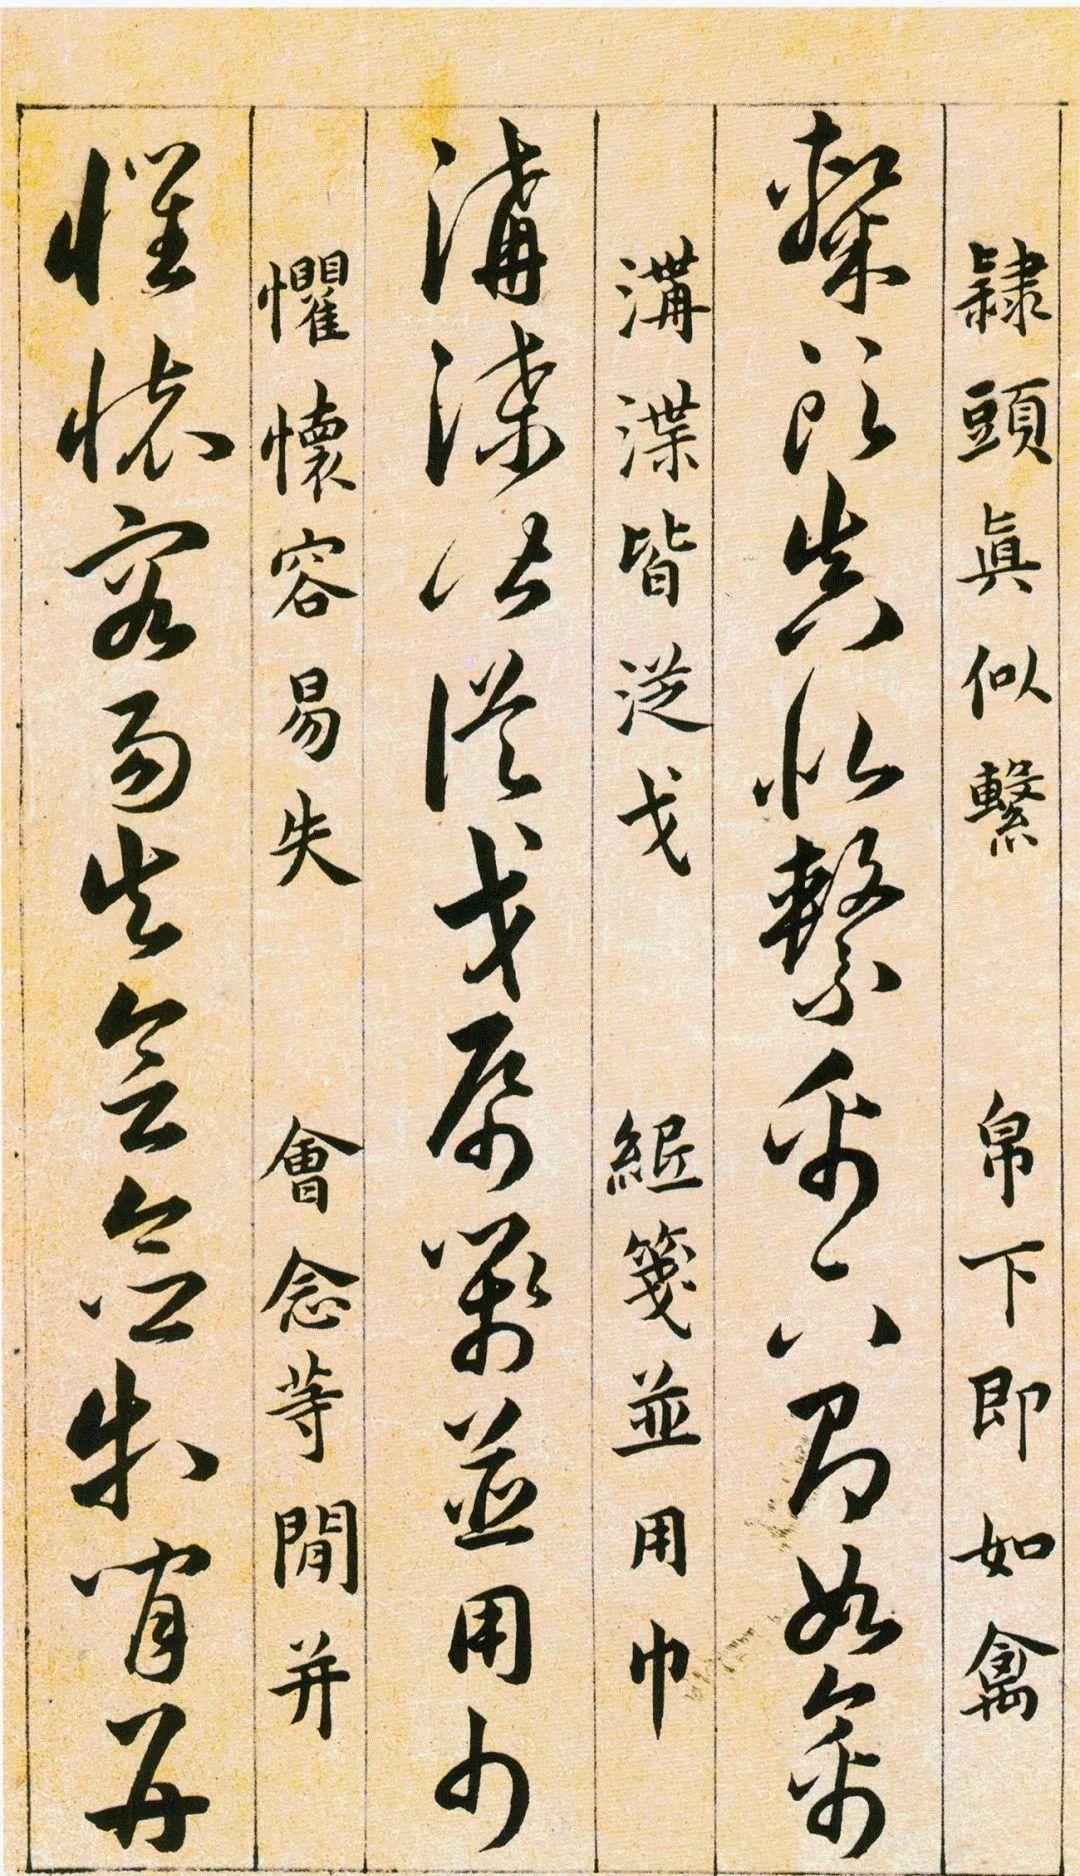 隸頭眞似繫 帛下即如禽
隸頭眞似繫帛下即如禽
溝渫皆從戈 箋並用巾
溝渫皆從戈 箋並用巾
懼懷容易失 會念等閒并
懼懷容易失會念等閒并